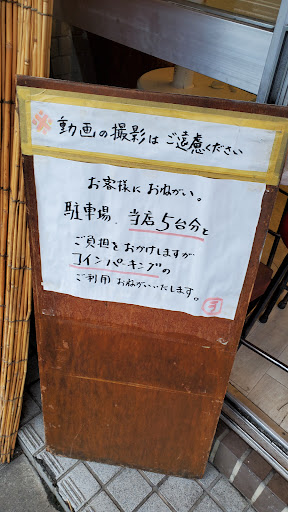 ※動画の撮影はご遠慮ください
お客様におねがい。
駐車場、当店5台分と
ご負担をおかけしますが
コインパーキングの
ご利用おねがいいたします。